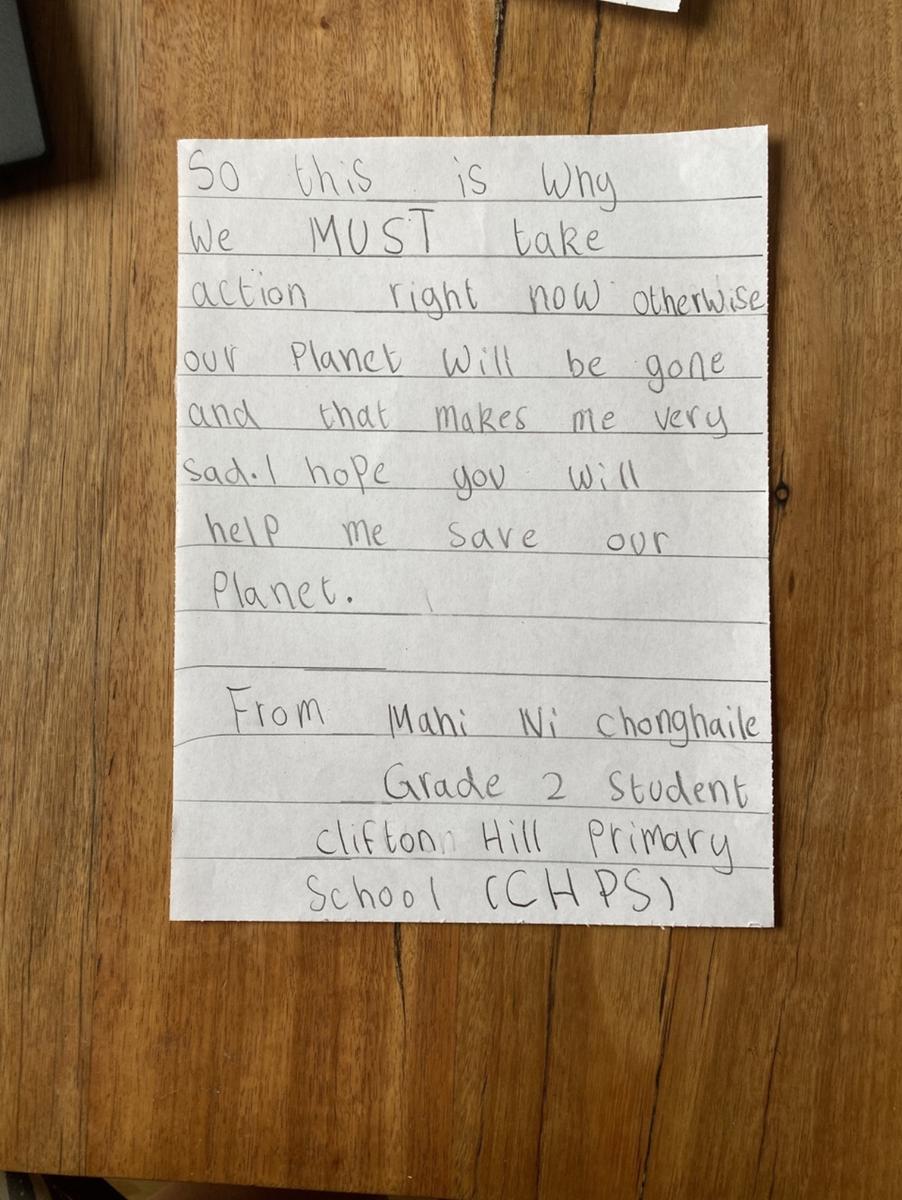 So this is why
we MUST take
action right now otherwise
our Planet will be gone
and that makes me very
sad. I hope you will
help me save our
Planet.
From Mahi Ni Chonghaile
Grade 2 Student
Clifton Hill Primary
School (CHPS)